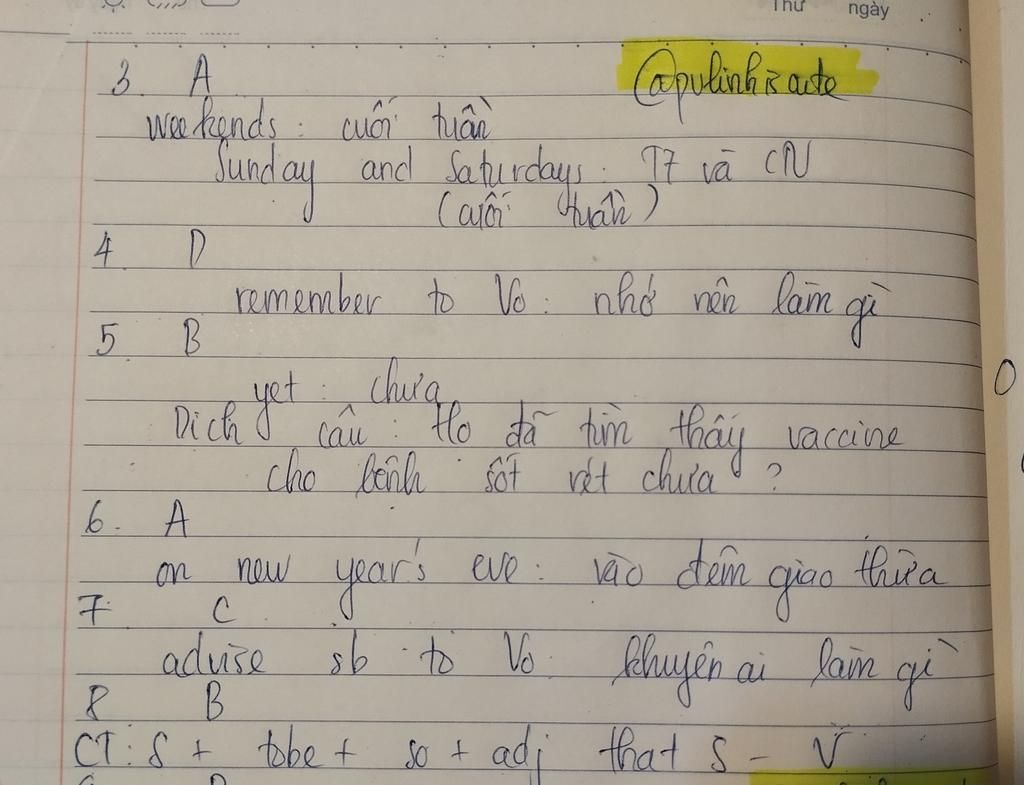 Thứ ngày
3. A @pulinhiscute
weekends: cuối tuần
Sunday and Saturdays: T7 và CN
(cuối tuần)
4. D
remember to Vo: nhớ nên làm gì
5 B
yet: chưa
Dịch câu: Họ đã tìm thấy vaccine
cho bệnh sốt rét chưa?
6. A
on new year's eve: vào đêm giao thừa
7. C
advise sb to Vo: khuyên ai làm gì
8 B
CT: S + tobe + so + adj that S - V